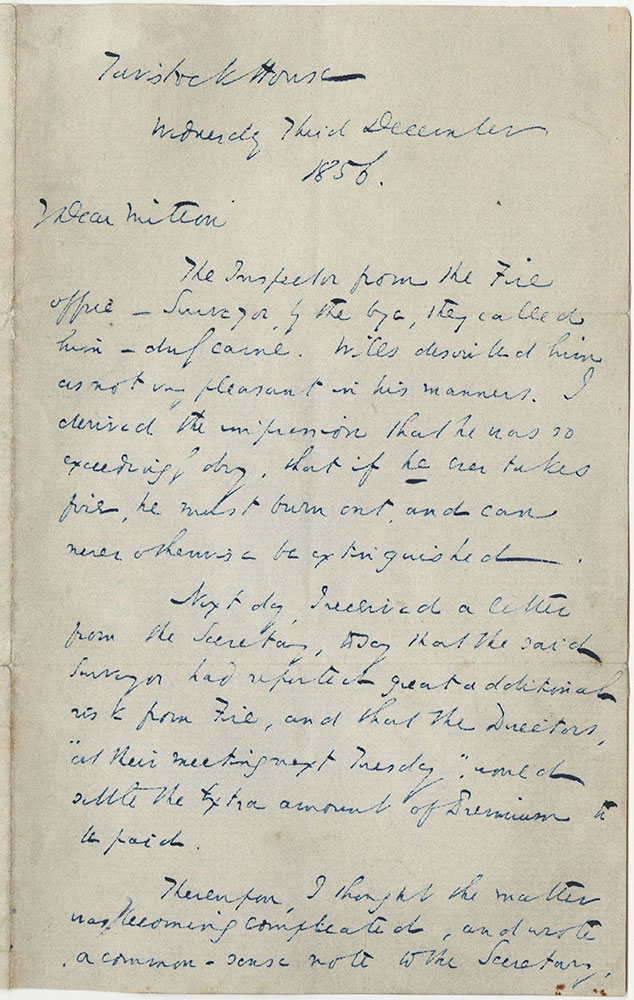 Tavistock House
Wednesday Third December
1856.
My Dear Mitton
The Inspector from the Fire
office – Surveyor, by the bye, they called
him – duly came. Wills described him
as not very pleasant in his manners. I
derived the impression that he was so
exceedingly dry, that if he ever takes
fire, he must burn out, and can
never otherwise be extinguished.
Next day, I received a letter
from the Secretary, to say that the said
Surveyor had reported great additional
risk from Fire, and that the Directors,
"at their meeting next Tuesday", would
settle the Extra amount of Premium to
be paid.
Thereupon, I thought the matter
was becoming complicated, and wrote
a common-sense note to the Secretary,